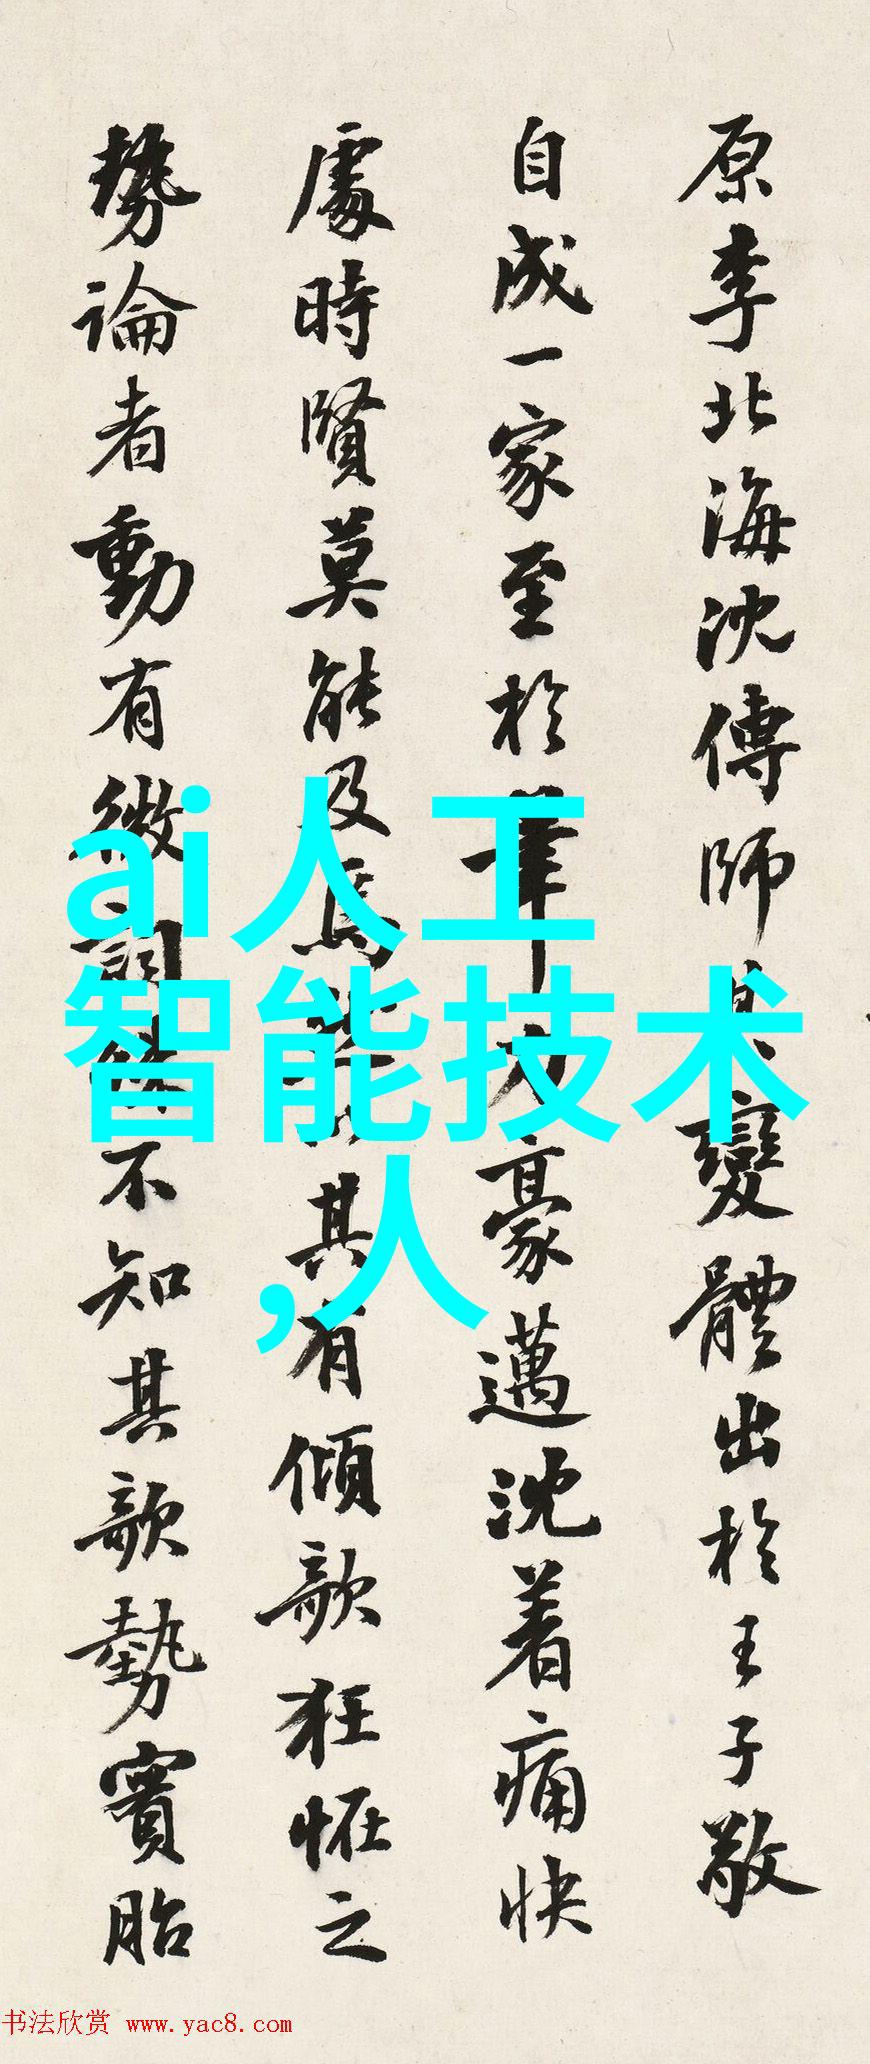 原李北海沈傳師其變體出於王子敬
自成一家至於筆力豪邁沈着痛快
處時賢莫能及焉其有傾欹狂怪之
勢論者動有微詞不知其欹勢實胎
ai人工
智能技术
,人
书法欣赏 www.yac8.com